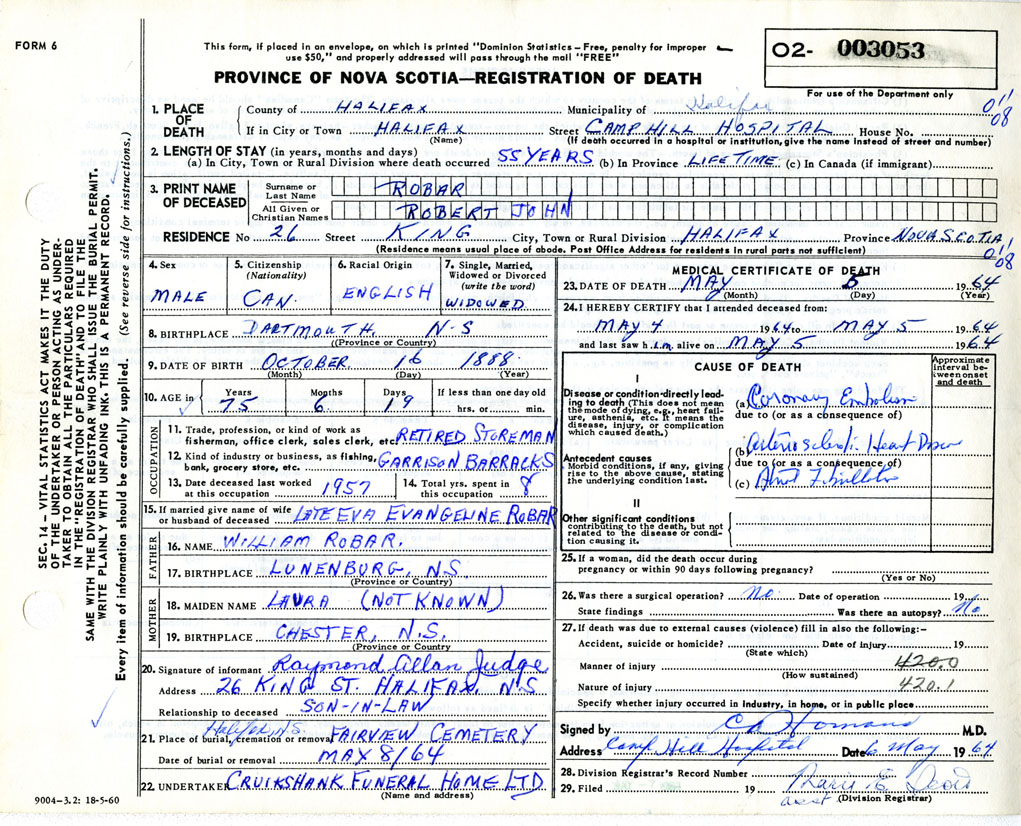 FORM 6
This form, if placed in an envelope, on which is printed "Dominion Statistics - Free, penalty for improper
use $50," and properly addressed will pass through the mail "FREE"
PROVINCE OF NOVA SCOTIA—REGISTRATION OF DEATH
O2- 003053
For use of the Department only
SEC. 14 - VITAL STATISTICS ACT MAKES IT THE DUTY
OF THE UNDERTAKER OR PERSON ACTING AS UNDER-
TAKER TO OBTAIN ALL THE PARTICULARS REQUIRED
IN THE "REGISTRATION OF DEATH" AND TO FILE THE
SAME WITH THE DIVISION REGISTRAR WHO SHALL ISSUE THE BURIAL PERMIT.
WRITE PLAINLY WITH UNFADING INK. THIS IS A PERMANENT RECORD.
Every item of information should be carefully supplied. (See reverse side for instructions.)
1. PLACE OF DEATH
County of HALIFAX Municipality of Halifax 011
08
If in City or Town HALIFAX Street CAMP HILL HOSPITAL House No.
(Name) (If death occurred in a hospital or institution, give the name instead of street and number)
2. LENGTH OF STAY (in years, months and days)
(a) In City, Town or Rural Division where death occurred 55 YEARS (b) In Province LIFE TIME (c) In Canada (if immigrant)
3. PRINT NAME OF DECEASED
Surname or Last Name ROBAR
All Given or Christian Names ROBERT JOHN
RESIDENCE No 26 Street KING City, Town or Rural Division HALIFAX Province NOVA SCOTIA
(Residence means usual place of abode. Post Office Address for residents in rural parts not sufficient) 011
08
4. Sex MALE
5. Citizenship (Nationality) CAN.
6. Racial Origin ENGLISH
7. Single, Married, Widowed or Divorced (write the word) WIDOWED
8. BIRTHPLACE DARTMOUTH N-S
(Province or Country)
9. DATE OF BIRTH OCTOBER 16 1888
(Month) (Day) (Year)
10. AGE in Years 75 Months 6 Days 19 If less than one day old hrs. or min.
OCCUPATION
11. Trade, profession, or kind of work as
fisherman, office clerk, sales clerk, etc. RETIRED STOREMAN
12. Kind of industry or business, as fishing,
bank, grocery store, etc. GARRISON BARRACKS
13. Date deceased last worked at this occupation 1957
14. Total yrs. spent in this occupation 8
15. If married give name of wife
or husband of deceased LATE EVA EVANGELINE ROBAR
FATHER
16. NAME WILLIAM ROBAR.
17. BIRTHPLACE LUNENBURG, N.S.
(Province or Country)
MOTHER
18. MAIDEN NAME LAURA (NOT KNOWN)
19. BIRTHPLACE CHESTER, N.S.
(Province or Country)
20. Signature of informant Raymond Allan Judge
Address 26 KING ST. HALIFAX, N.S
Relationship to deceased SON-IN-LAW
Halifax, N.S.
21. Place of burial, cremation or removal FAIRVIEW CEMETERY
Date of burial or removal MAY 8/64
22. UNDERTAKER CRUIKSHANK FUNERAL HOME LTD
(Name and address)
9004-3.2: 18-5-60
MEDICAL CERTIFICATE OF DEATH
23. DATE OF DEATH MAY 5 1964
(Month) (Day) (Year)
24. I HEREBY CERTIFY that I attended deceased from:
MAY 4 1964 to MAY 5 1964
and last saw him alive on MAY 5 1964
CAUSE OF DEATH
Approximate interval between onset and death
I
Disease or condition directly leading to death (This does not mean the mode of dying, e.g., heart failure, asthenia, etc. It means the disease, injury, or complication which caused death.)
(a) Coronary Embolism
due to (or as a consequence of)
Antecedent causes
Morbid conditions, if any, giving rise to the above cause, stating the underlying condition last.
(b) Arteriosclerotic Heart Disease
due to (or as a consequence of)
(c)
II
Other significant conditions
contributing to the death, but not related to the disease or condition causing it.
25. If a woman, did the death occur during
pregnancy or within 90 days following pregnancy?
(Yes or No)
26. Was there a surgical operation? No. Date of operation 19
State findings Was there an autopsy? No
27. If death was due to external causes (violence) fill in also the following:-
Accident, suicide or homicide? Date of injury 19
(State which)
Manner of injury 420.0
(How sustained)
Nature of injury 420.1
Specify whether injury occurred in industry, in home, or in public place
Signed by M.D.
Address Camp Hill Hospital Date 6 May 1964
28. Division Registrar's Record Number
29. Filed 19 Marie E.
asst (Division Registrar)